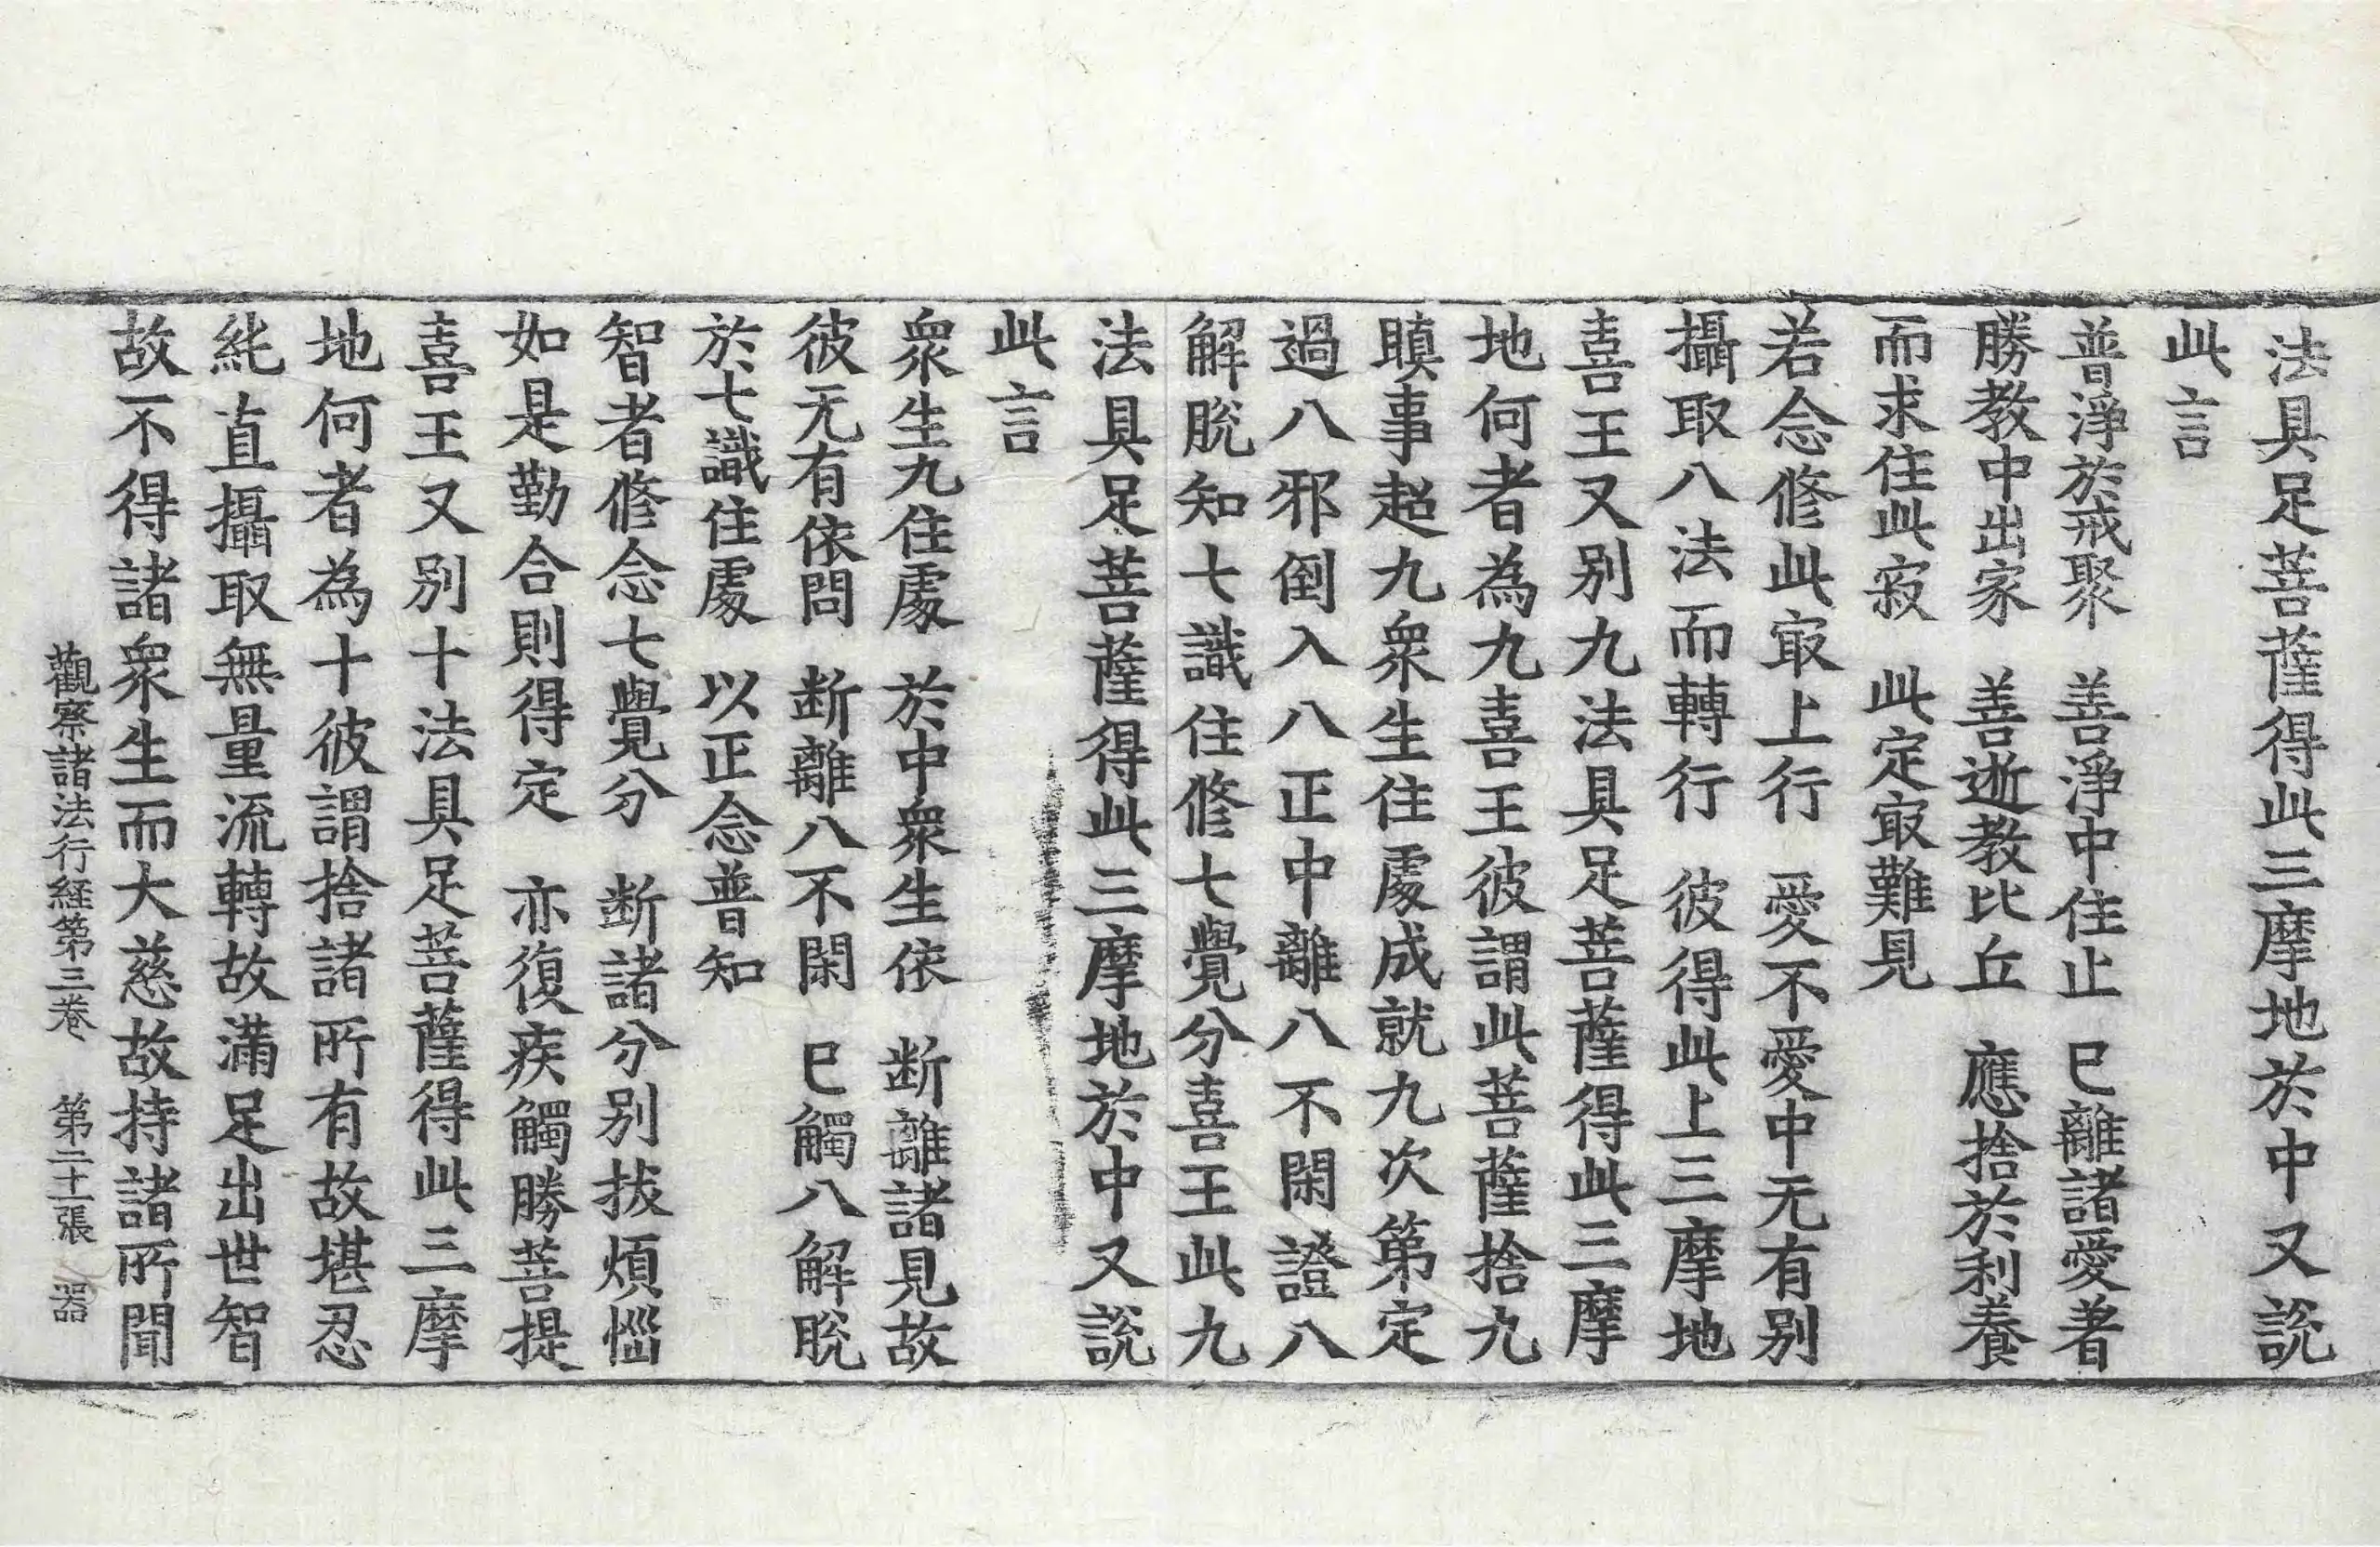 法具足菩薩得此三摩地於中又說
此言
普淨於戒聚　善淨中住止　已離諸愛著
勝教中出家　善逝教比丘　應捨於利養
而求住此寂　此定㝡難見
若念修此㝡上行　愛不愛中无有别
攝取八法而轉行　彼得此上三摩地
喜王又别九法具足菩薩得此三摩
地何者為九喜王彼謂此菩薩捨九
瞋事超九衆生住處成就九次第定
過八邪倒入八正中離八不閑證八
解脫知七識住修七覺分喜王此九
法具足菩薩得此三摩地於中又說
此言
衆生九住處　於中衆生依　断離諸見故
彼无有依問　断離八不閑　已觸八解脫
於七識住處　以正念普知
智者修念七覺分　断諸分别拔煩惱
如是勤合則得定　亦復疾觸勝菩提
喜王又别十法具足菩薩得此三摩
地何者為十彼謂捨諸所有故堪忍
純直攝取無量流轉故滿足出世智
故不得諸衆生而大慈故持諸所聞
觀察諸法行経第三卷　第二十一張　器